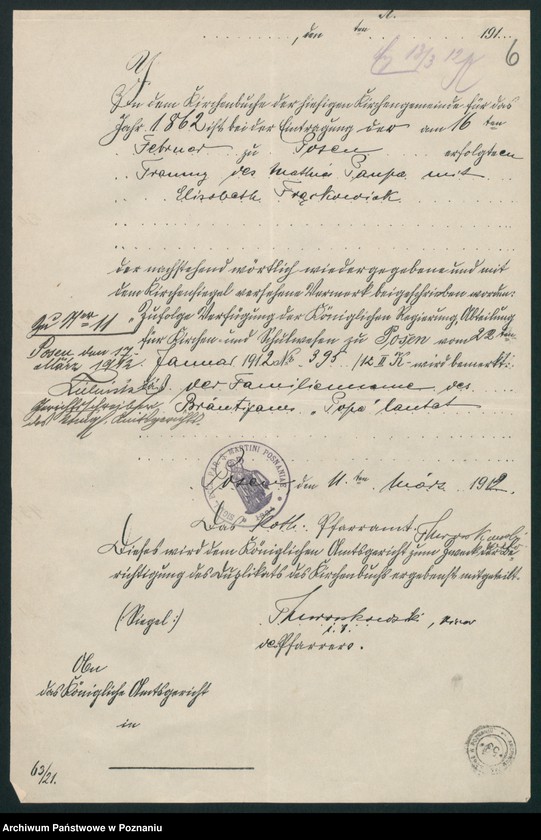 , den ten 191
13/3 12
6
In dem Kirchenbuche der hiesigen Kirchengemeinde für das
Jahr 1862 ist bei der Eintragung der am 16 ten
Februar zu Posen erfolgten
Trauung des Mathias Paupa mit
Elisabeth Frąckowiak
der nachstehend wörtlich wiedergegebene und mit
dem Kirchensiegel versehene Vermerk beigeschrieben worden:
"Zufolge Verfügung der Königlichen Regierung, Abteilung
für Kirchen- und Schulwesen zu Posen vom 22 ten
Januar 1912 No 395 /12 II K wird bemerkt:
daß der Familienname des
Bräutigams "Popa" lautet
Posen, den 17.
März 1912
Gerichtsschreiber
des Königl. Amtsgerichts.
MARTINI POSNANIAE
Posen den 11 ten März 1912.
Das Kath. Pfarramt.
Dieses wird dem Königlichen Amtsgericht zum Zweck der Be-
richtigung des Duplikats des Kirchenbuchs ergebenst mitgeteilt.
(Siegel:)
des Pfarrers.
An
das Königliche Amtsgericht
in
63/21.
Archiwum Państwowe w Poznaniu